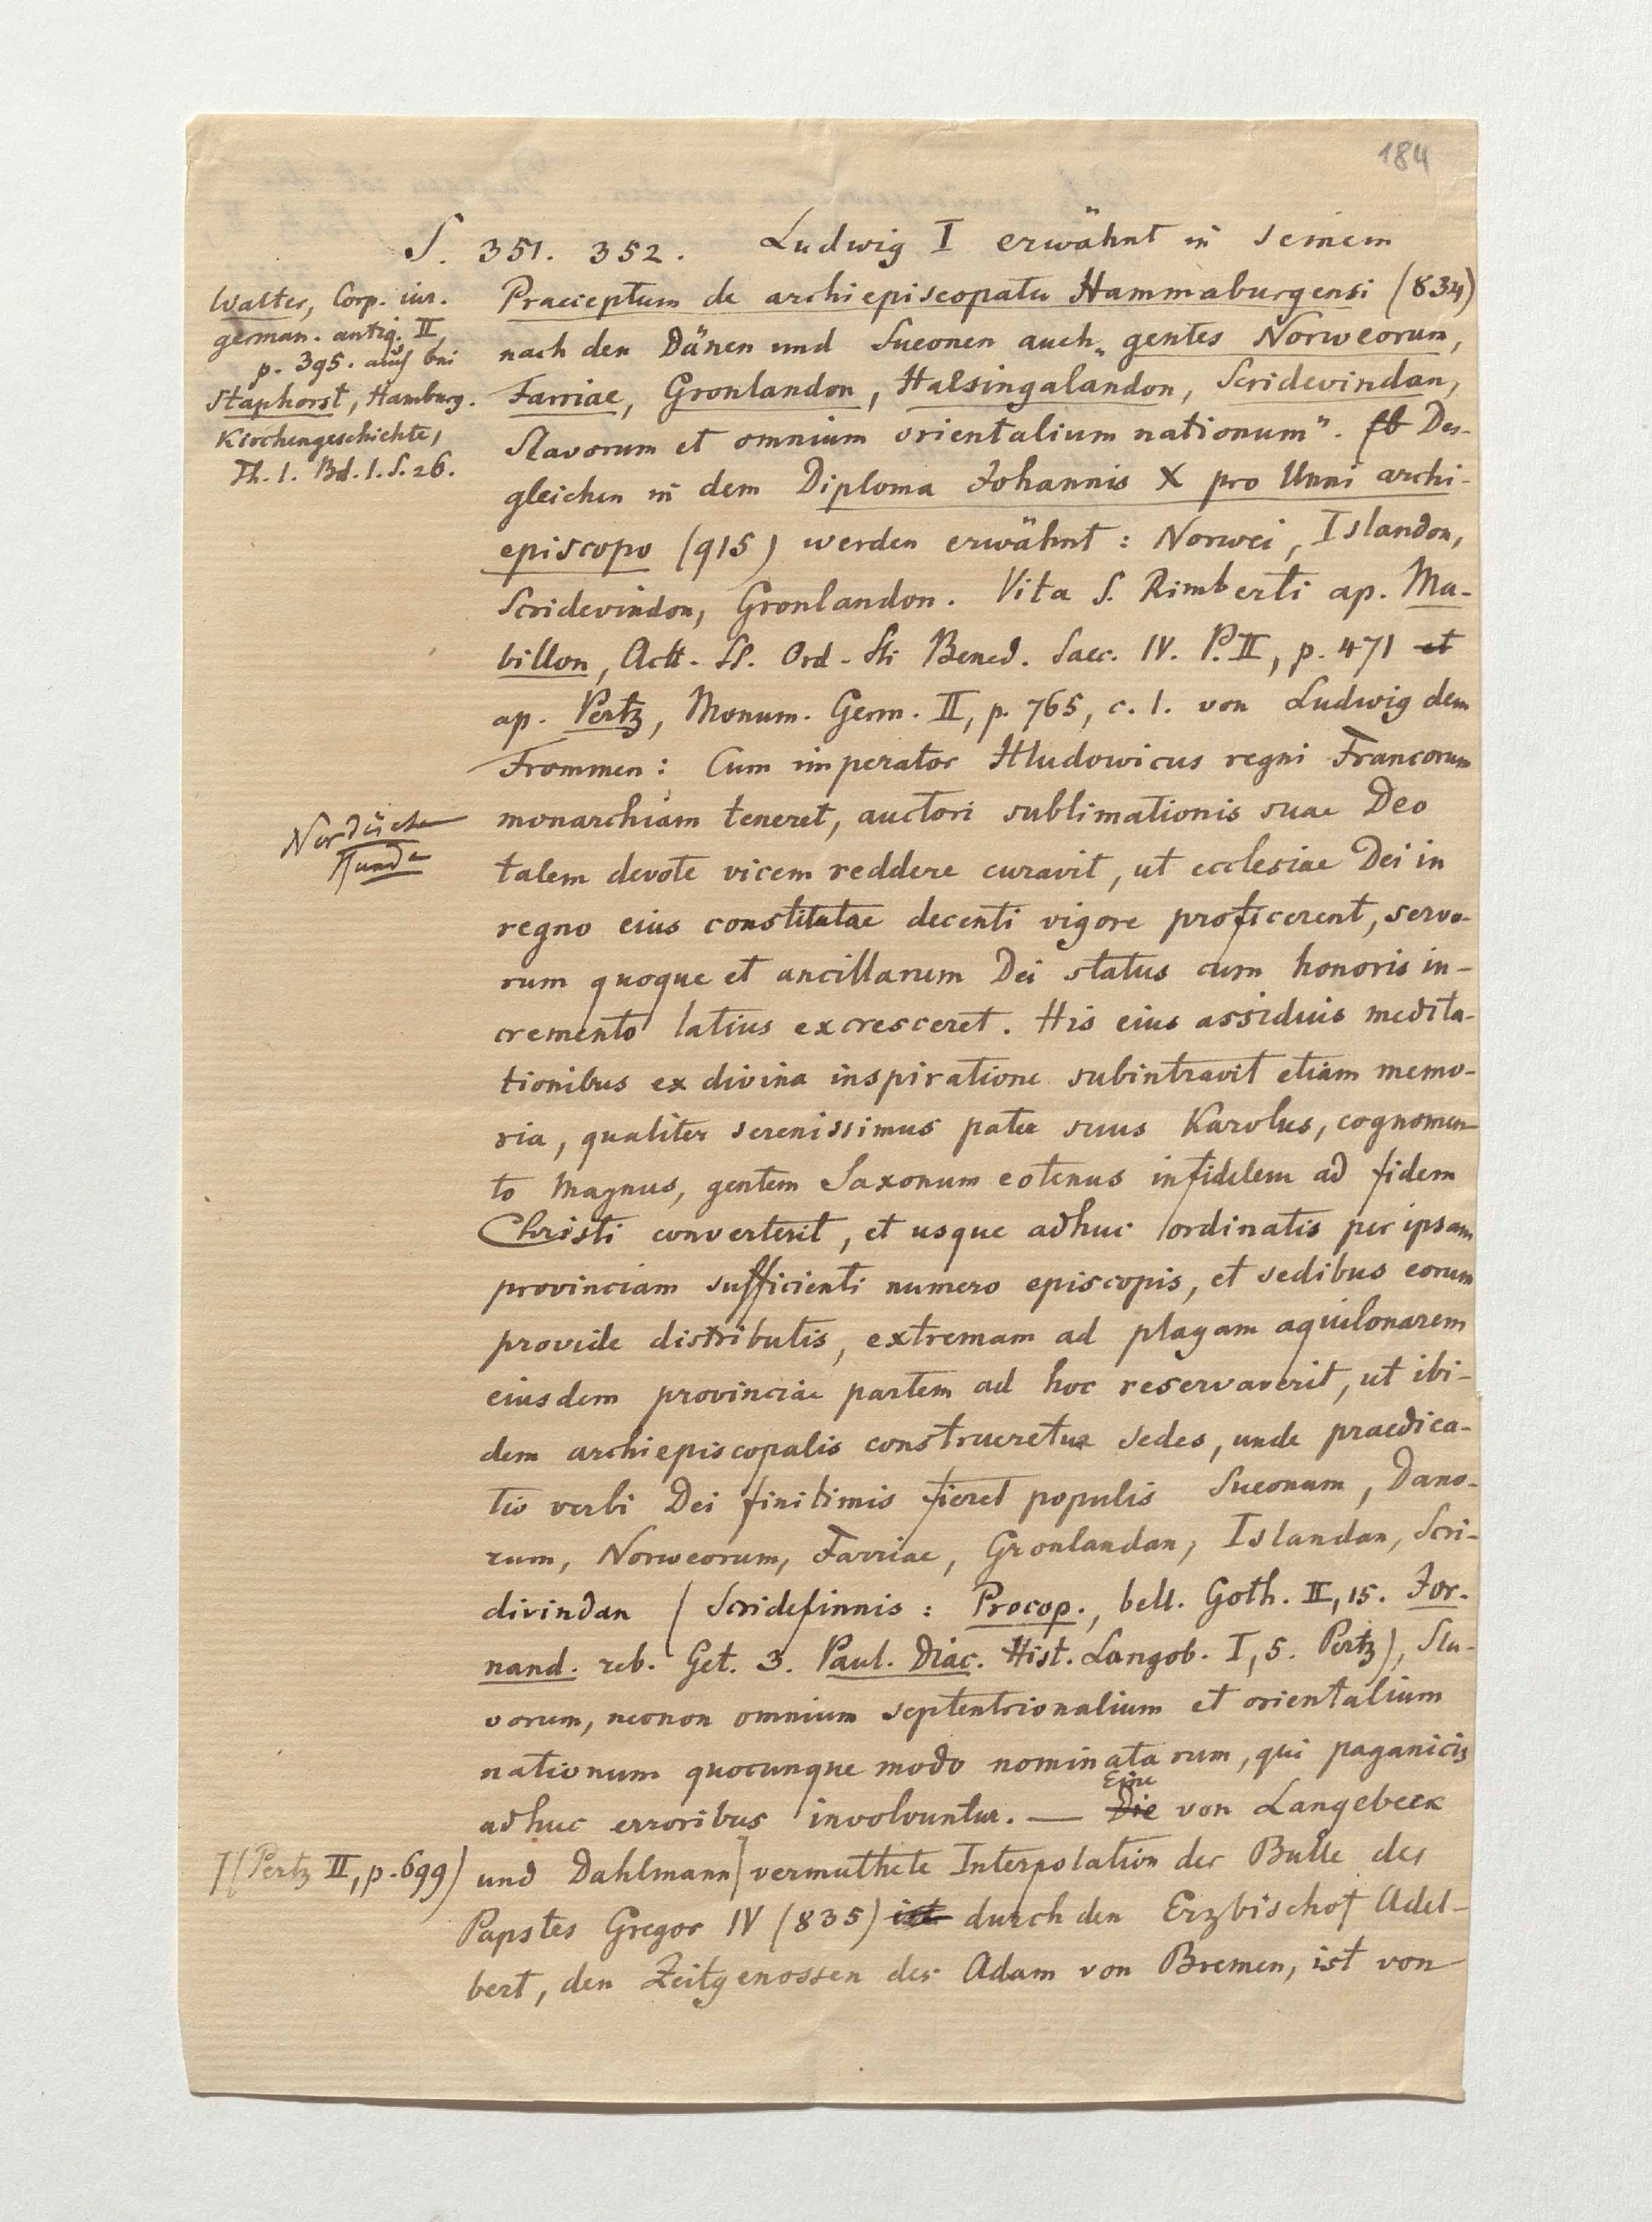 184
S. 351. 352. Ludwig I erwähnt in seinem
Praeceptum de archiepiscopatu Hammaburgensi (834)
nach den Dänen und Sueonen auch „gentes Norweorum,
Farriae, Gronlandon, Halsingalandon, Scridevindan,
Slavorum et omnium orientalium nationum”. Des-
gleichen in dem Diploma Johannis X pro Unni archi-
episcopo (915) werden erwähnt: Norwei, Islandon,
Scridevindon, Gronlandon. Vita S. Rimberti ap. Ma-
billon, Actt. SS. Ord. Sti Bened. Saec. IV. P. II, p. 471 et
ap. Pertz, Monum. Germ. II, p. 765, c. 1. von Ludwig dem
Frommen: Cum imperator Hludowicus regni Francorum
monarchiam teneret, auctori sublimationis suae Deo
talem devote vicem reddere curavit, ut ecclesiae Dei in
regno eius constitutae decenti vigore proficerent, servo-
rum quoque et ancillarum Dei status cum honoris in-
cremento latius excresceret. His eius assiduis medita-
tionibus ex divina inspiratione subintravit etiam memo-
ria, qualiter serenissimus pater suus Karolus, cognomen-
to Magnus, gentem Saxonum eotenus infidelem ad fidem
Christi converterit, et usque adhuc ordinatis per ipsam
provinciam sufficienti numero episcopis, et sedibus eorum
provide distributis, extremam ad plagam aquilonarem
eiusdem provinciae partem ad hoc reservaverit, ut ibi-
dem archiepiscopalis construeretur sedes, unde praedica-
tio verbi Dei finitimis fieret populis Sueonum, Dano-
rum, Norweorum, Farriae, Gronlandan, Islandan, Scri-
divindan (Scridefinnis: Procop., bell. Goth. II, 15. Jor-
nand. reb. Get. 3. Paul. Diac. Hist. Langob. I, 5. Pertz), Sla-
vorum, necnon omnium septentrionalium et orientalium
nationum quocunque modo nominatarum, qui paganicis
adhuc erroribus involvuntur. — Die Eine von Langebeck
und Dahlmann] vermuthete Interpolation der Bulle des
Papstes Gregor IV (835) ist durch den Erzbischof Adel-
bert, den Zeitgenossen des Adam von Bremen, ist von
Walter, Corp. iur.
german. antiq. II
p. 395. auch bei
Staphorst, Hamburg.
Kirchengeschichte,
Th. 1. Bd. 1. S. 26.
Nordische
Kunde
](Pertz II, p. 699)